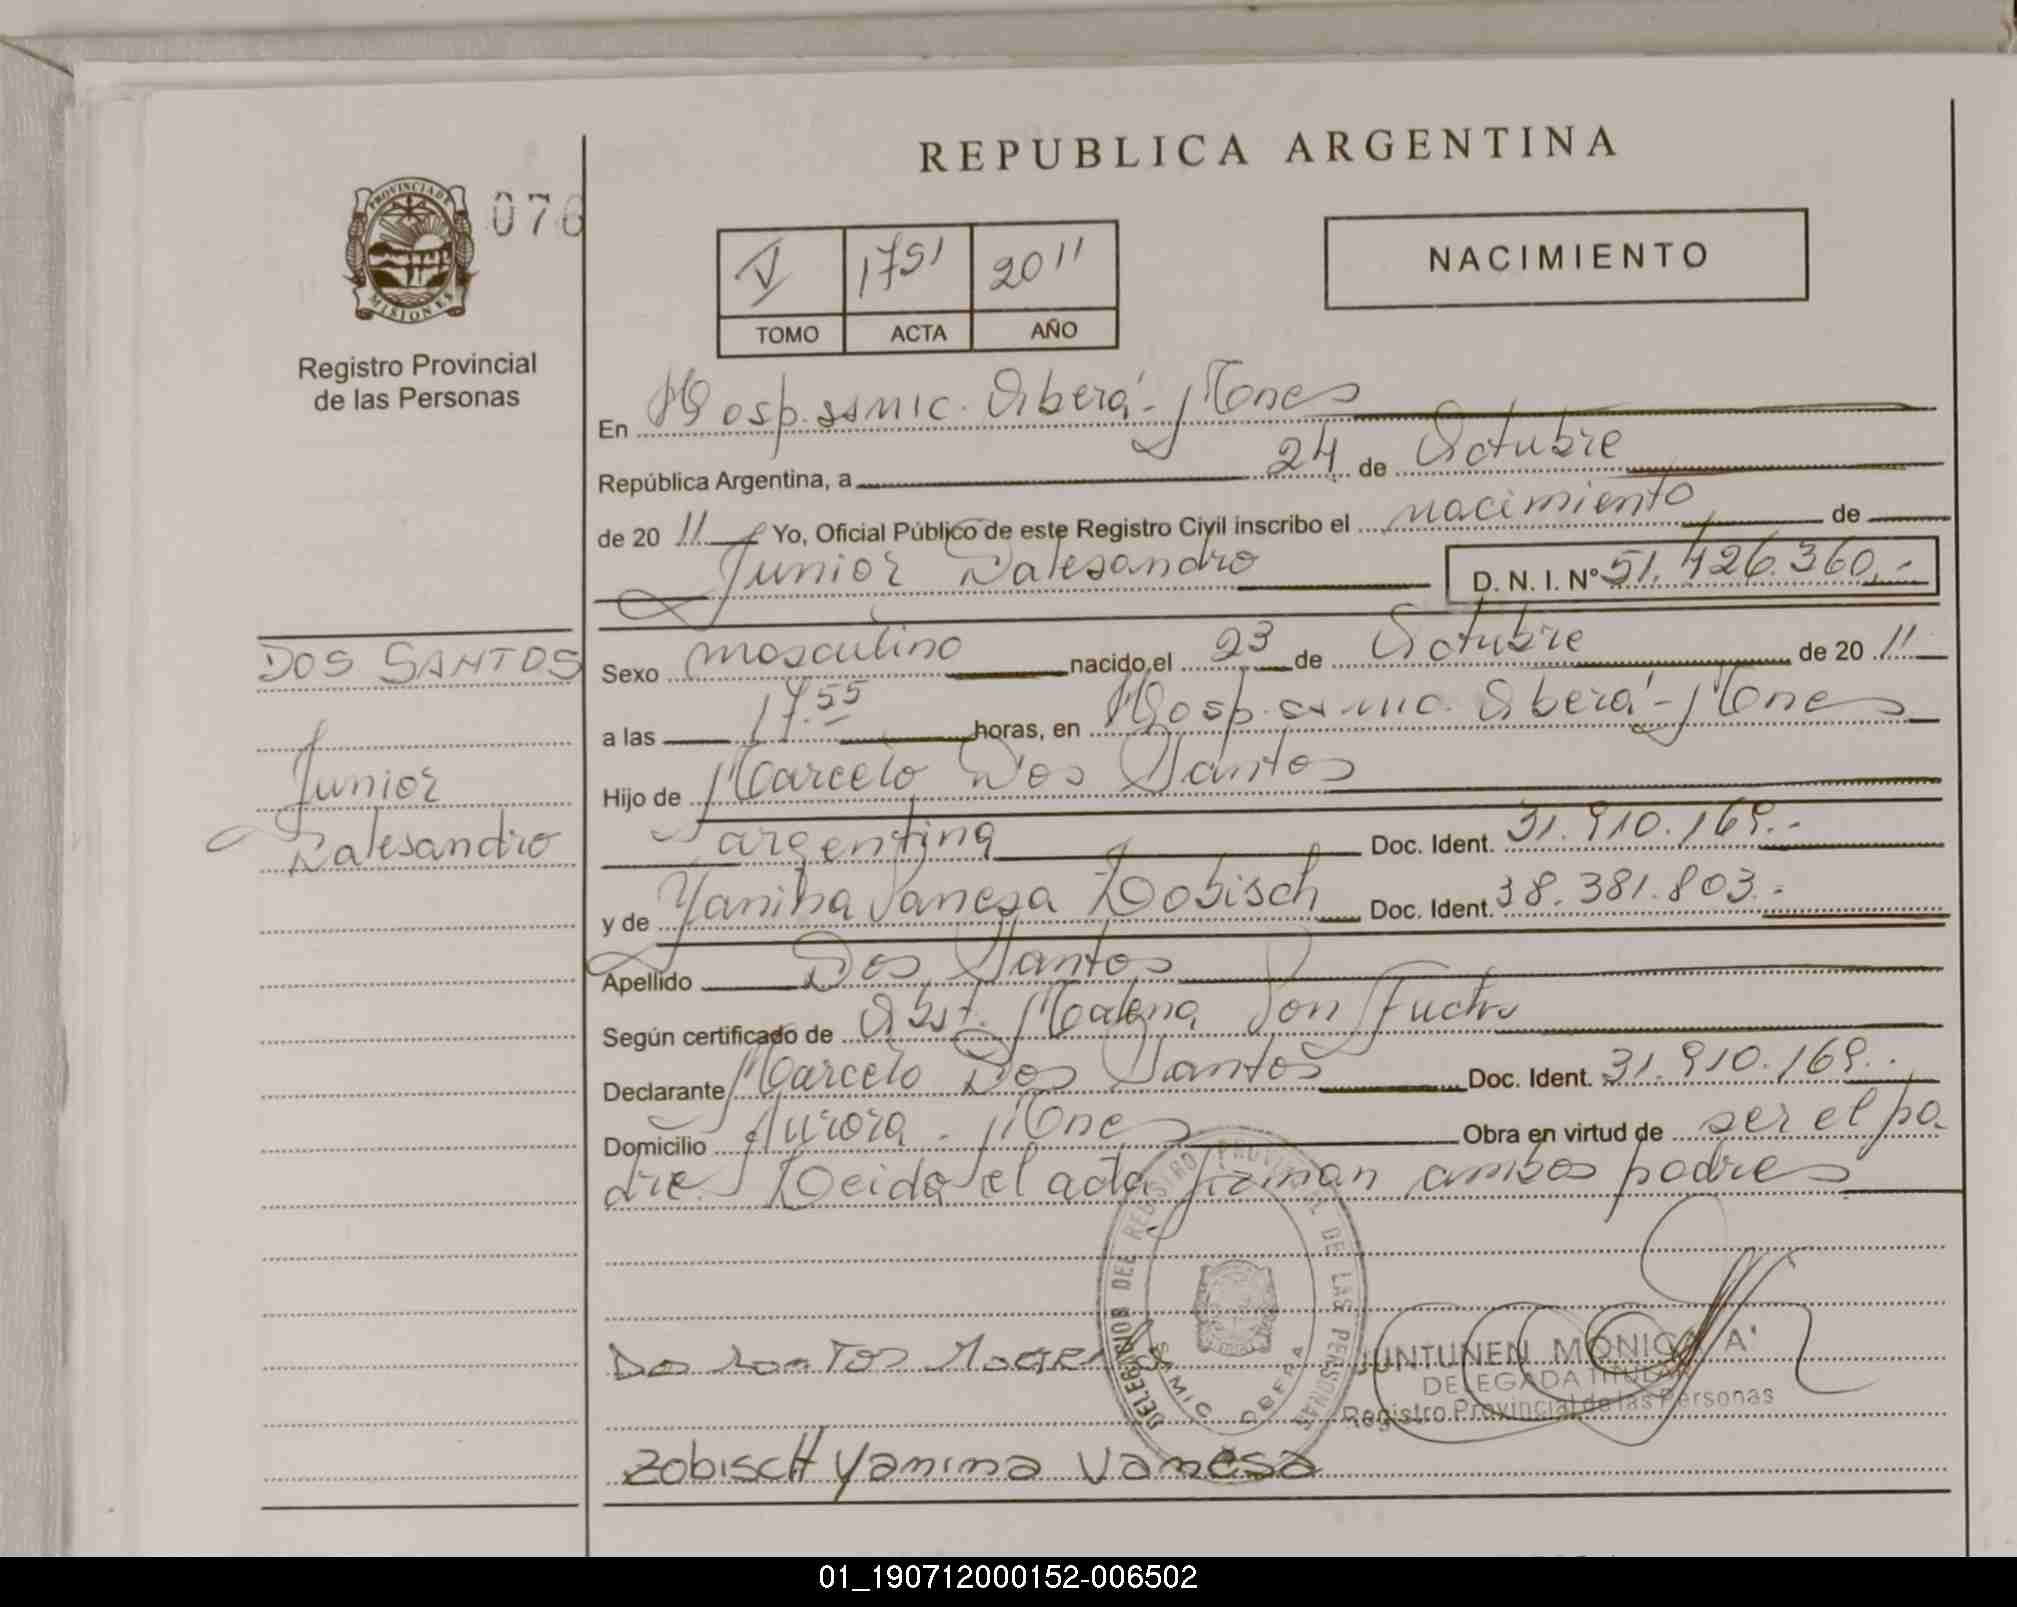 REPUBLICA ARGENTINA
PROVINCIA DE
MISIONES
076
Registro Provincial
de las Personas
V 1751 2011
TOMO ACTA AÑO
NACIMIENTO
En Hosp. ssmic. Oberá - Mnes
República Argentina, a 24 de Octubre
de 20 11 Yo, Oficial Público de este Registro Civil inscribo el nacimiento de
Junior Dalesandro D. N. I. N° 51.426.360.-
DOS SANTOS
Junior
Dalesandro
Sexo masculino nacido el 23 de Octubre de 20 11
a las 17.55 horas, en Hosp. ssmic. Oberá - Mnes
Hijo de Marcelo Dos Santos
argentina Doc. Ident. 31.910.169.-
y de Yanina Vanesa Zobisch Doc. Ident. 38.381.803.-
Apellido Dos Santos
Según certificado de Obst. Malena Von
Declarante Marcelo Dos Santos Doc. Ident. 31.910.169.-
Domicilio Aurora - Mnes Obra en virtud de ser el pa
dre. Leida el acta firman ambos padres
DELEGACION DEL REGISTRO PROVINCIAL DE LAS PERSONAS
SAMIC OBERA
Dos Santos Marcelo
JUNTUNEN MONICA A.
DELEGADA TITULAR
Registro Provincial de las Personas
Zobisch Yanina Vanesa
01_190712000152-006502